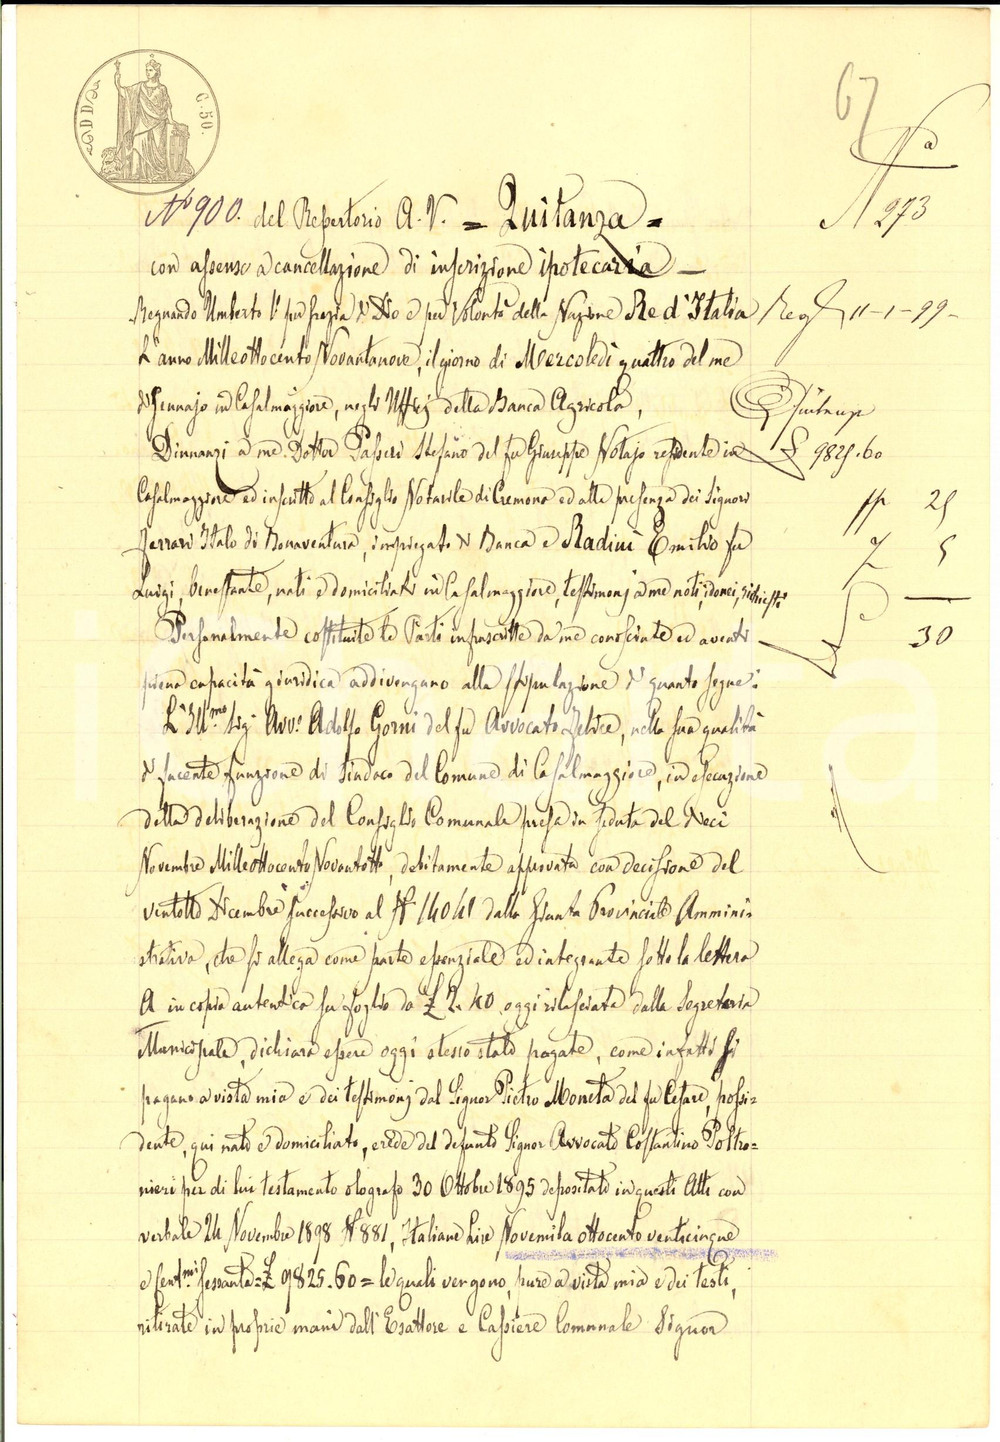 ADD
C. 50.
67
Nº 900. del Repertorio A. V. = Quitanza =
N 273
con assenso a cancellazione di inscrizione ipotecaria —
Regnando Umberto Iº per grazia di Dio e per Volontà della Nazione Re d'Italia
Regº 11-1-99-
L'anno Milleottocento Novantanove, il giorno di Mercoledì quattro del me
di Gennajo in Casalmaggiore, negli Ufficj della Banca Agricola,
Dinnanzi a me Dottor Passeri Stefano del fu Giuseppe Notajo residente in
£ 9825.60
Casalmaggiore ed inscritto al Consiglio Notarile di Cremona ed alla presenza dei Signori
25
Ferrari Italo di Bonaventura, impiegato di Banca e Radini Emilio fu
5
Luigi, benestante, nati e domiciliati in Casalmaggiore, testimonj a me noti, idonei, richiesti
Personalmente costituite le Parti infrascritte da me conosciute ed aventi
30
piena capacità giuridica addivengano alla stipulazione di quanto segue:
L'Ill.mo Sig.r Avv.o Adolfo Gorni del fu Avvocato Felice, nella sua qualità
di facente funzione di Sindaco del Comune di Casalmaggiore, in esecuzione
della deliberazione del Consiglio Comunale presa in seduta del Dieci
Novembre Milleottocento Novantotto, debitamente approvata con decisione del
ventotto Dicembre successivo al Nº 14041 dalla Giunta Provinciale Ammini-
strativa, che si allega come parte essenziale ed integrante sotto la lettera
A in copia autentica su foglio da £ 2.40 oggi rilasciata dalla Segreteria
Municipale, dichiara essere oggi stesso stato pagate, come infatti si
pagano a vista mia e dei testimonj dal Signor Pietro Moneta del fu Cesare, possi-
dente, qui nato e domiciliato, erede del defunto Signor Avvocato Costantino Poltro-
nieri per di lui testamento olografo 30 Ottobre 1895 depositato in questi Atti con
verbale 24 Novembre 1898 Nº 881, Italiane Lire Novemila ottocento venticinque
e Cent.mi Sessanta = £ 9825.60 = le quali vengono, pure a vista mia e dei testi,
ritirate in proprie mani dall'Esattore e Cassiere Comunale Signor